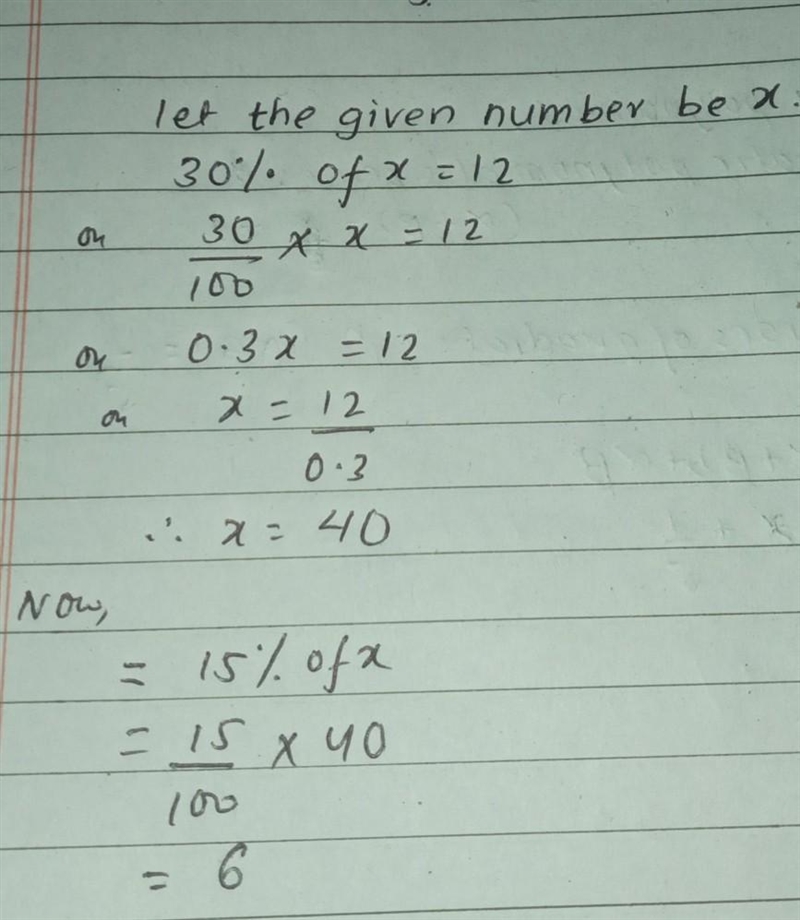 let the given number be x.
30% of x = 12
or 30/100 × x = 12
or 0.3x = 12
or x = 12/0.3
∴ x = 40
Now,
= 15% of x
= 15/100 × 40
= 6